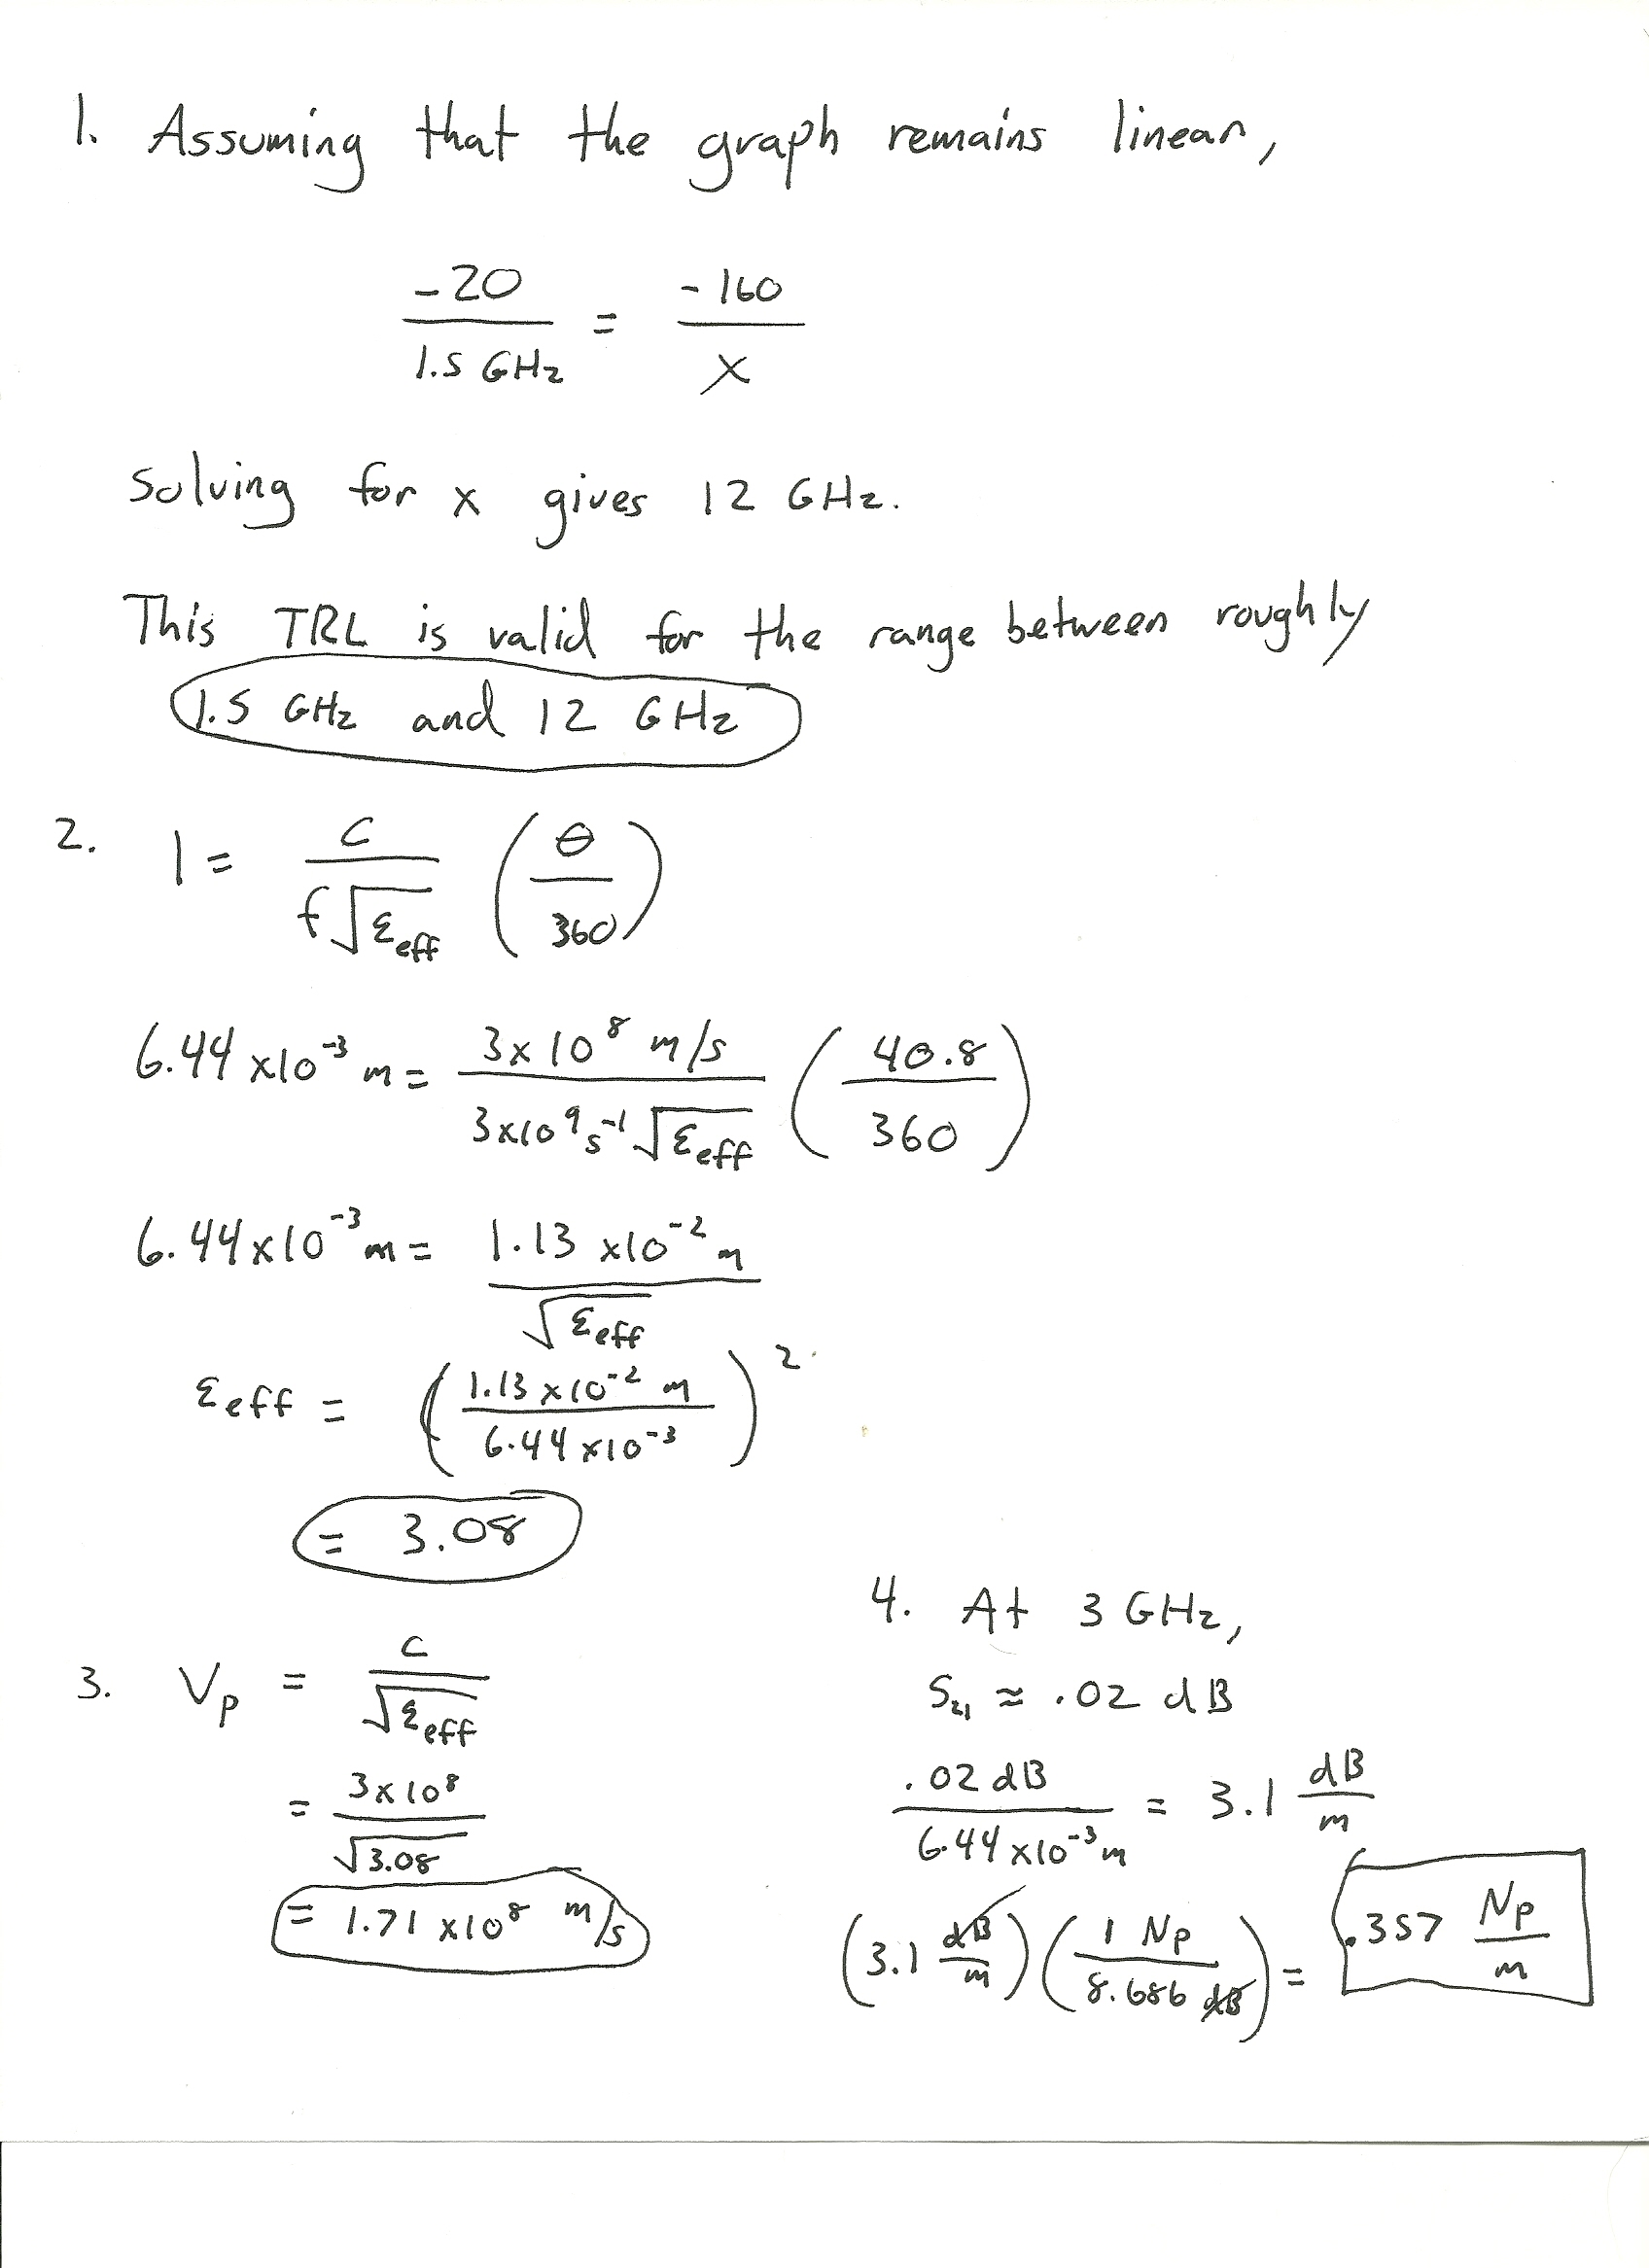 1. Assuming that the graph remains linear,
-20 / 1.5 GHz = -160 / x
Solving for x gives 12 GHz.
This TRL is valid for the range between roughly
1.5 GHz and 12 GHz
2. l = c / f√ε_eff (θ / 360)
6.44 x10^-3 m = 3x10^8 m/s / 3x10^9 s^-1 √ε_eff (40.8 / 360)
6.44x10^-3 m = 1.13 x10^-2 m / √ε_eff
ε_eff = (1.13 x10^-2 m / 6.44 x10^-3)^2
= 3.08
3. Vp = c / √ε_eff
= 3x10^8 / √3.08
= 1.71 x10^8 m/s
4. At 3 GHz,
S21 ≈ .02 dB
.02 dB / 6.44 x10^-3 m = 3.1 dB/m
(3.1 dB/m) (1 Np / 8.686 dB) = .357 Np/m